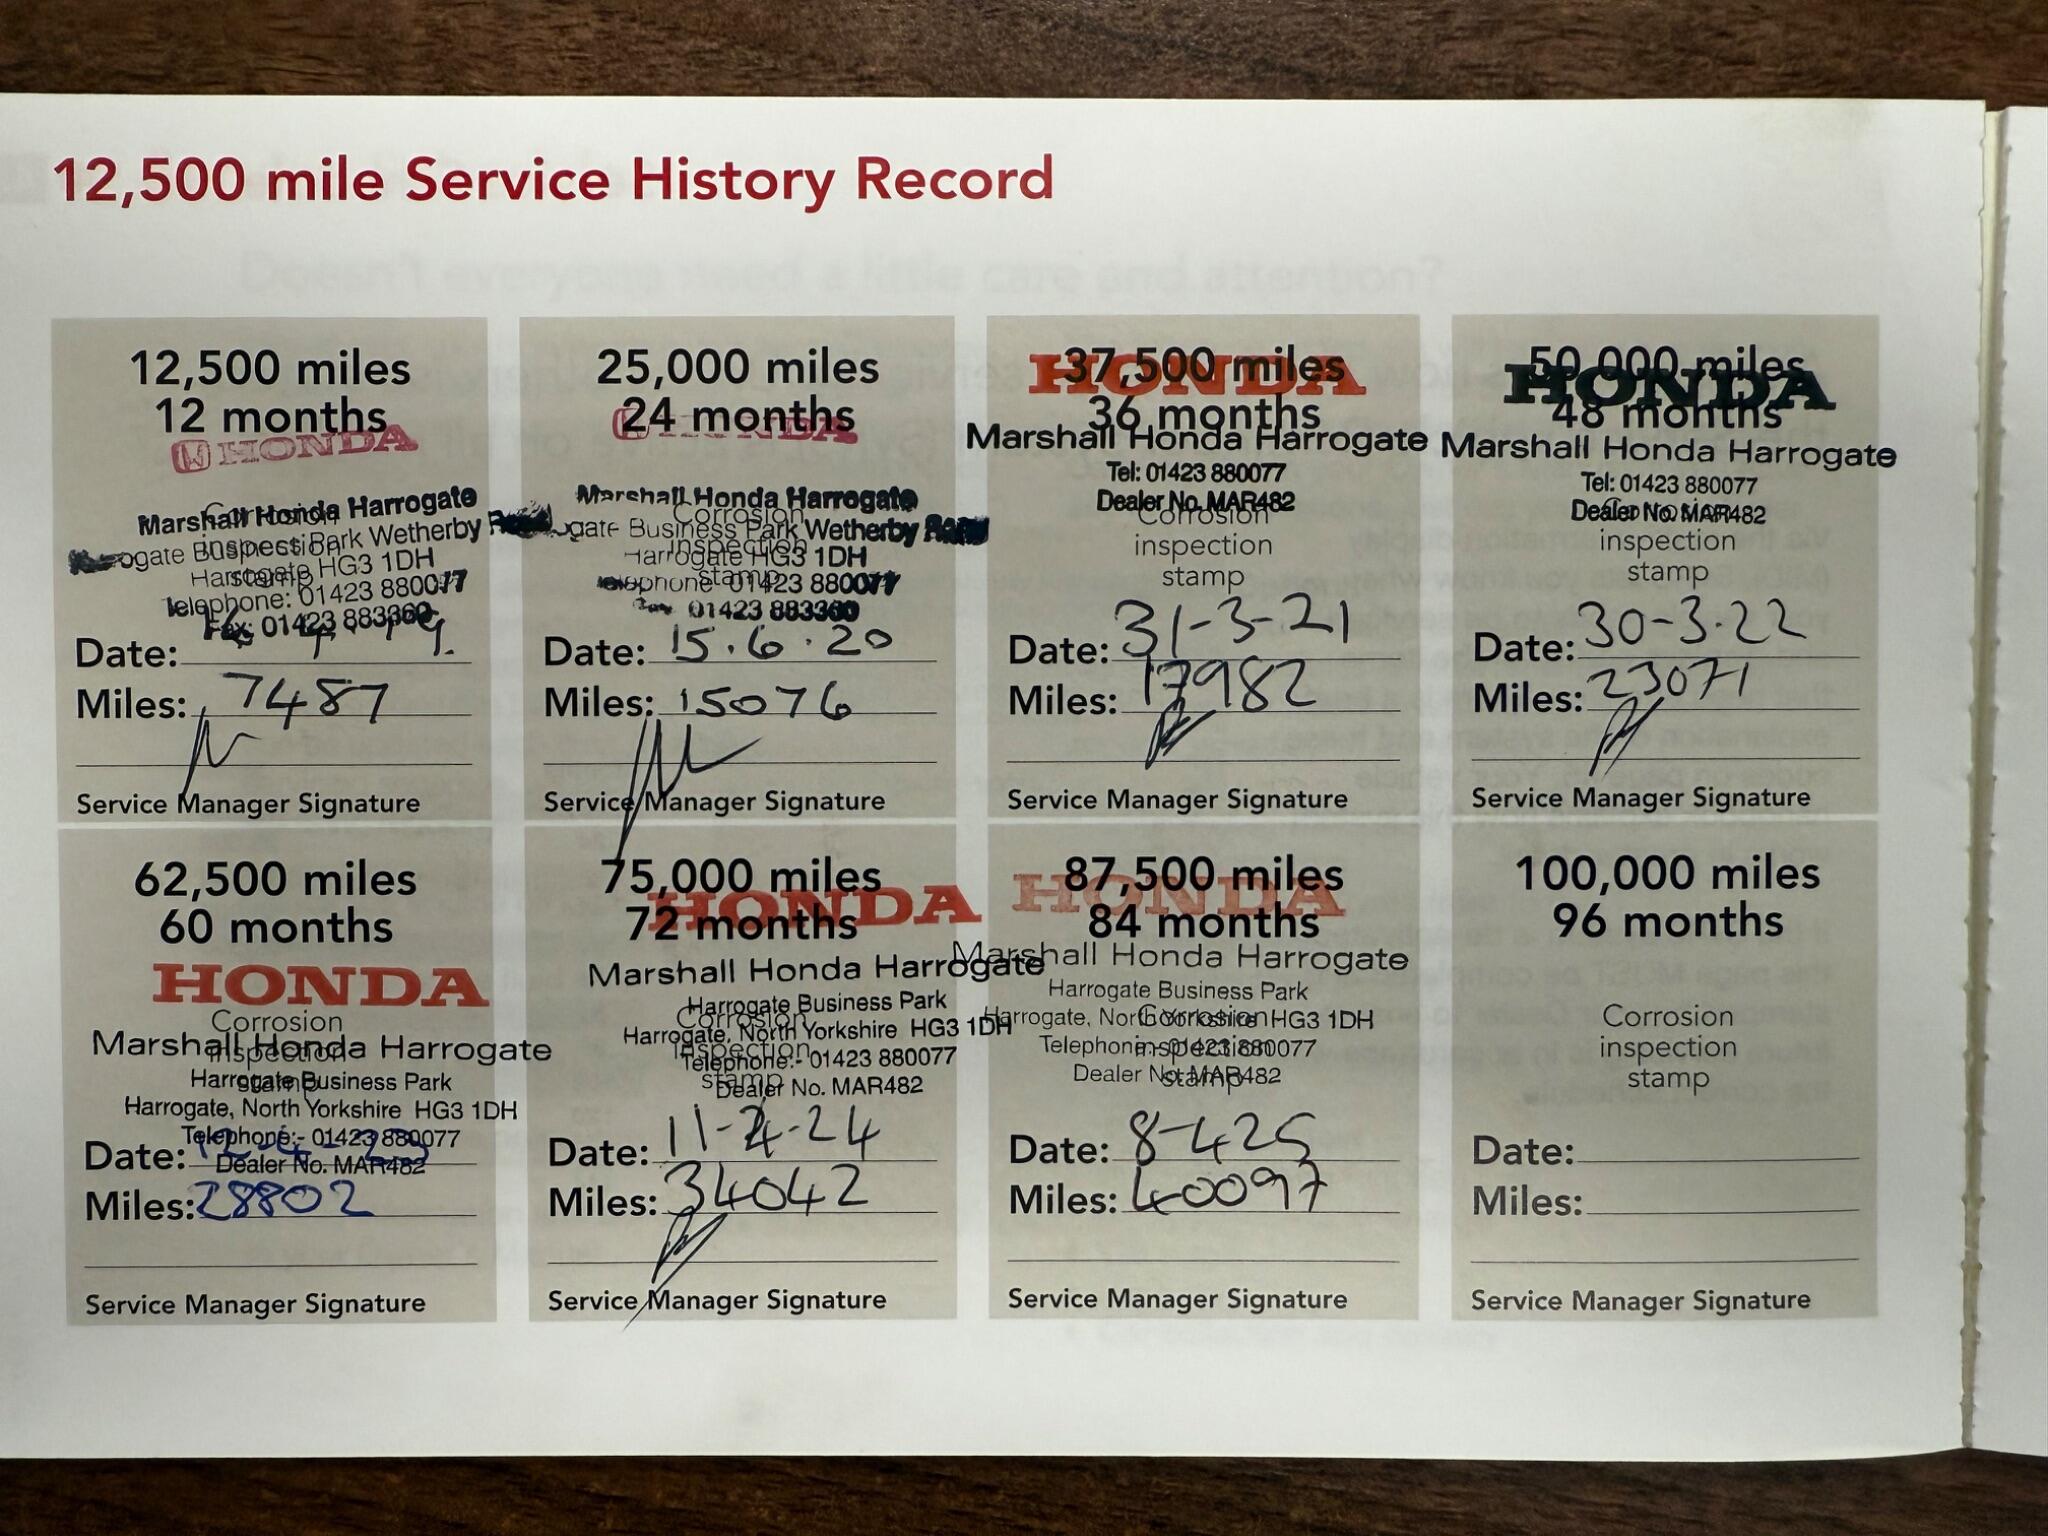 12,500 mile Service History Record
12,500 miles
12 months
HONDA
Corrosion
inspection
stamp
Marshall Honda Harrogate
rogate Business Park Wetherby
Harrogate HG3 1DH
Telephone: 01423 880077
Fax: 01423 883360
Date:
Miles: 7487
Service Manager Signature
25,000 miles
24 months
HONDA
Corrosion
inspection
stamp
Marshall Honda Harrogate
ogate Business Park Wetherby Road
Harrogate HG3 1DH
elephone 01423 880077
01423 883360
Date: 15.6.20
Miles: 15076
Service Manager Signature
37,500 miles
36 months
HONDA
Marshall Honda Harrogate
Tel: 01423 880077
Dealer No. MAR482
Corrosion
inspection
stamp
Date: 31-3-21
Miles: 17982
Service Manager Signature
50,000 miles
48 months
HONDA
Marshall Honda Harrogate
Tel: 01423 880077
Dealer No. MAR482
Corrosion
inspection
stamp
Date: 30-3-22
Miles: 23071
Service Manager Signature
62,500 miles
60 months
HONDA
Corrosion
inspection
stamp
Marshall Honda Harrogate
Harrogate Business Park
Harrogate, North Yorkshire HG3 1DH
Telephone:- 01423 880077
Dealer No. MAR482
Date: 12-4-23
Miles: 28802
Service Manager Signature
75,000 miles
72 months
HONDA
Marshall Honda Harrogate
Harrogate Business Park
Corrosion
inspection
stamp
Harrogate, North Yorkshire HG3 1DH
Telephone:- 01423 880077
Dealer No. MAR482
Date: 11-4-24
Miles: 34042
Service Manager Signature
87,500 miles
84 months
HONDA
Marshall Honda Harrogate
Harrogate Business Park
Corrosion
inspection
stamp
Harrogate, North Yorkshire HG3 1DH
Telephone:- 01423 880077
Dealer No. MAR482
Date: 8-425
Miles: 40097
Service Manager Signature
100,000 miles
96 months
Corrosion
inspection
stamp
Date:
Miles:
Service Manager Signature